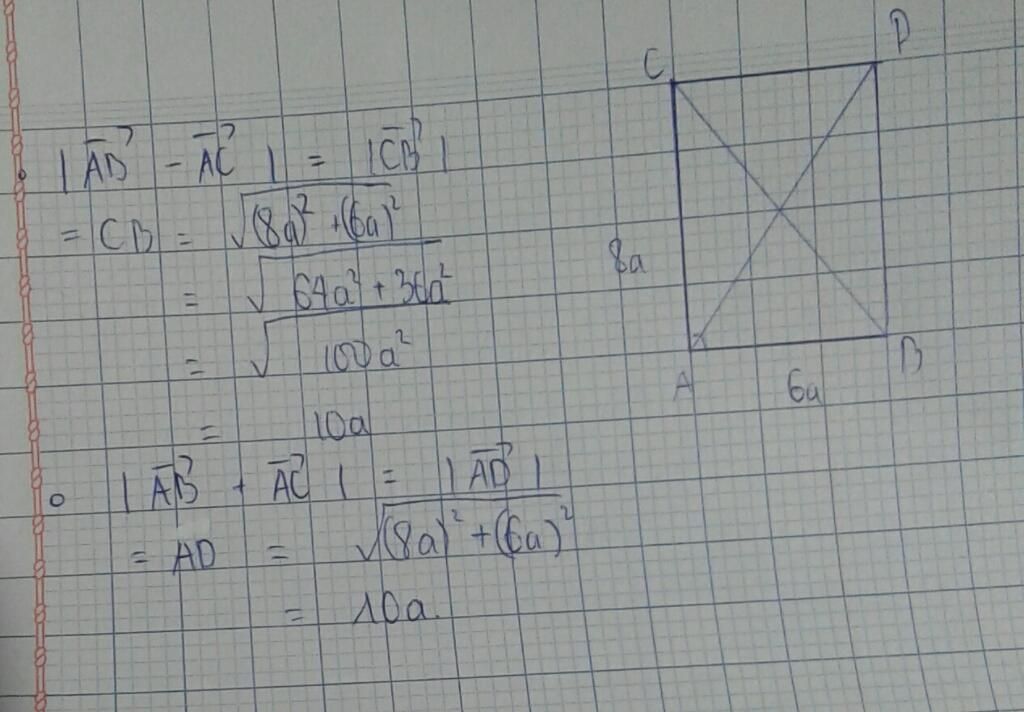 |AB⃗ - AC⃗| = |CB⃗|
= CB = √((8a)² + (6a)²)
= √(64a² + 36a²)
= √(100a²)
= 10a
|AB⃗ + AC⃗| = |AD⃗|
= AD = √((8a)² + (6a)²)
= 10a.
C
D
8a
A
6a
B